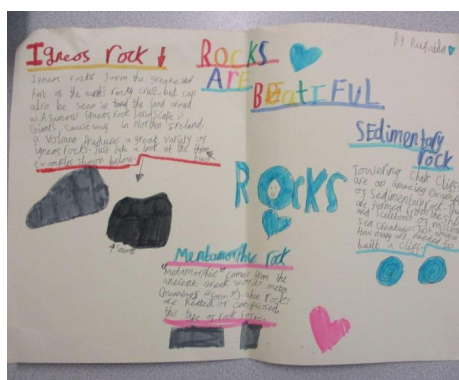 Igneos rock
Igneos rocks form the greatest
Part of the words rocky crust. but can
also be seen
A famous igneos rock landscape is
Giants Causeway in Northen Ireland.
a Volcano Produces a great variety of
igneos rocks. Just take a look at the three
examples shown below.
ROCKS
ARE
BEatiFUL
By Rufaida
ROCKS
SEdimentary
rock
Towering Chalk Cliffs
are an amazing example
of Sedimentary rock. They
are formed from the
and Skeletons of
sea creatures. Just imagine
How many are needed to
built a Cliff.
Metamorphic rock
"Metamorphic" comes from the
ancient Greek words meta
(meaning "form"). when rocks
are heated or compressed
this type of rock forms.